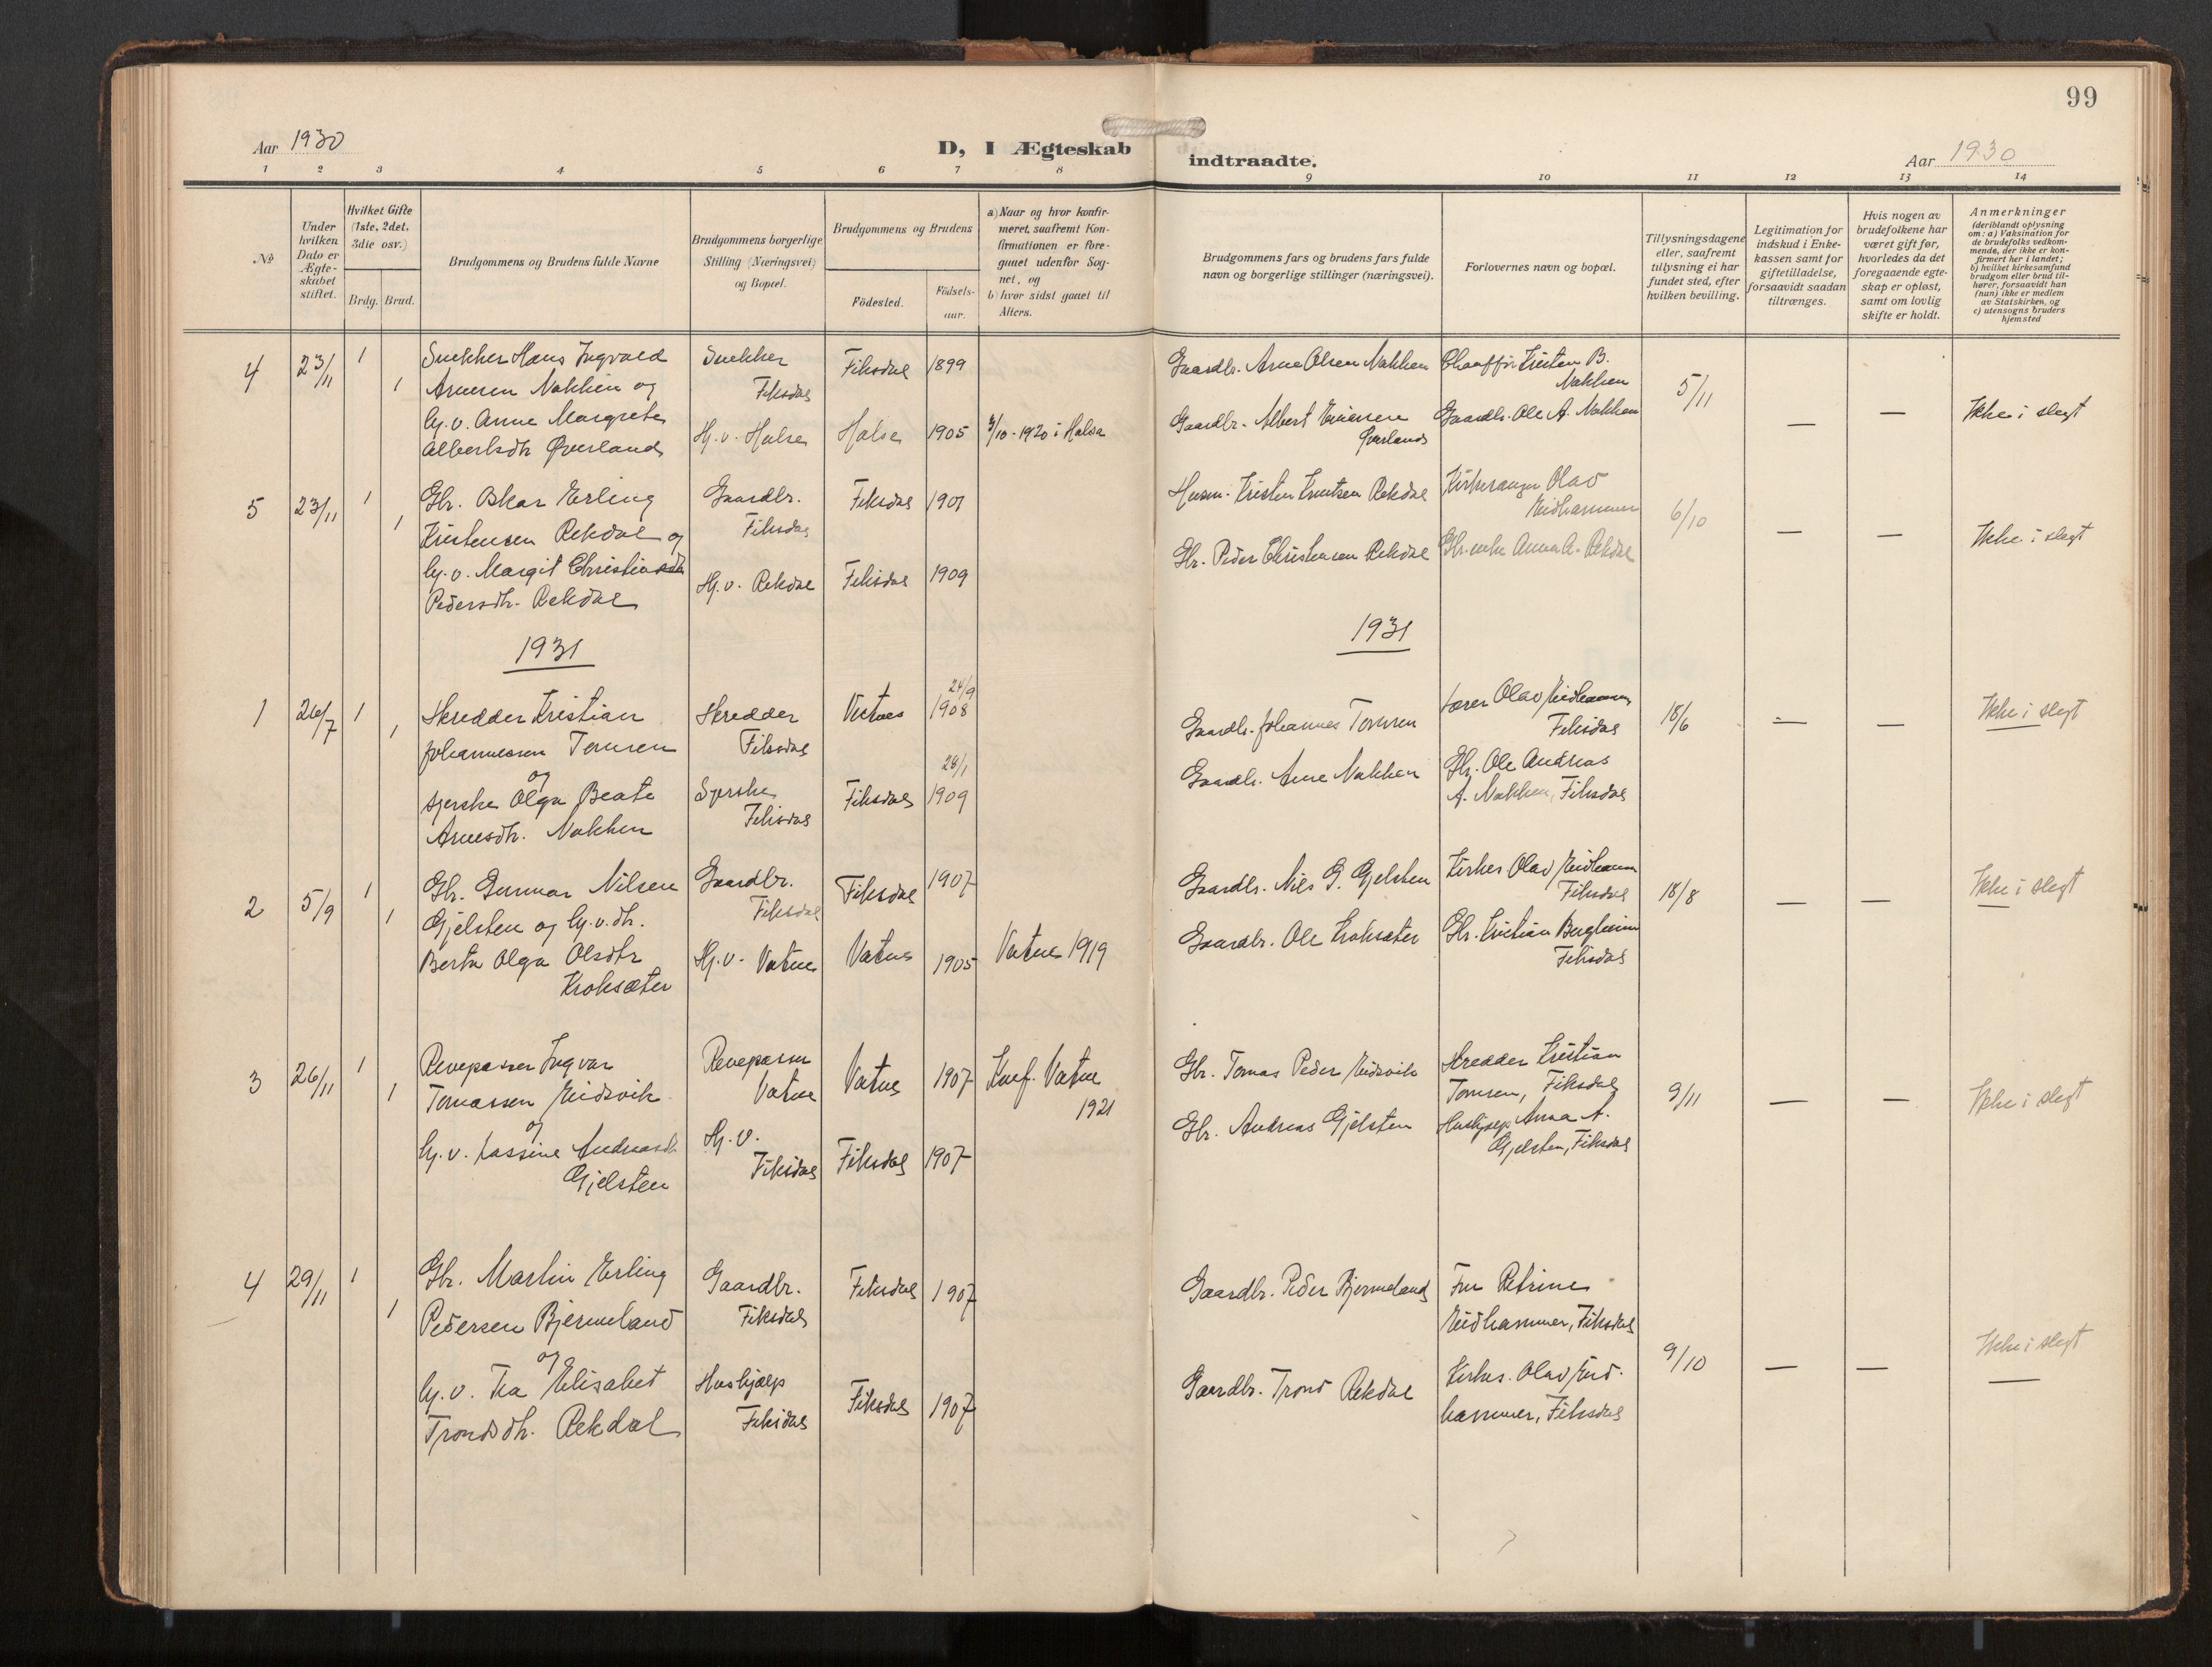 99
Aar 1930
D, I Ægteskab
indtraadte.
Aar 1930
1 2 3 4 5 6 7 8 9 10 11 12 13 14
No
Under
hvilken
Dato er
Ægte-
skabet
stiftet.
Hvilket Gifte
(1ste, 2det,
3die osv.)
Brdg. Brud.
Brudgommens og Brudens fulde Navne
Brudgommens borgerlige
Stilling (Næringsvei)
og Bopæl.
Brudgommens og Brudens
Födested.
Födsels-
aar.
a) Naar og hvor konfir-
meret, saafremt Kon-
firmationen er fore-
gaaet udenfor Sog-
net, og
b) hvor sidst gaaet til
Alters.
Brudgommens fars og brudens fars fulde
navn og borgerlige stillinger (næringsvei).
Forlovernes navn og bopæl.
Tillysningsdagene
eller, saafremt
tillysning ei har
fundet sted, efter
hvilken bevilling.
Legitimation for
indskud i Enke-
kassen samt for
giftetilladelse,
forsaavidt saadan
tiltrænges.
Hvis nogen av
brudefolkene har
været gift før,
hvorledes da det
foregaaende egte-
skap er opløst,
samt om lovlig
skifte er holdt.
Anmerkninger
(deriblandt oplysning
om: a) Vaksination for
de brudefolks vedkom-
mende, der ikke er kon-
firmert her i landet;
b) hvilket kirkesamfund
brudgom eller brud til-
hører, forsaavidt han
(hun) ikke er medlem
av Statskirken, og
c) utensogns bruders
hjemsted
4 23/11 1
1
Snekker Hans Ingvald
Arnesen Nakken og
Hj.v. Anne Margrete
Albertsdtr Øverland
Snekker
Fiksdal
Hj. v. Halse
Fiksdal 1899
Halse 1905 3/10 - 1920 i Halsa
Gaardbr. Arne Olsen Nakken
Gaardbr. Albert
Øverland
Chauffør Kristen B.
Nakken
Gaardbr. Ole A. Nakken
5/11 — — Ikke i slegt
5 23/11 1
1
Gbr. Oskar Erling
Kristensen Rekdal og
Hj.v. Margit
Pedersdtr. Rekdal
Gaardbr.
Fiksdal
Hj. v. Rekdal
Fiksdal 1901
Fiksdal 1909
Husm. Kristen Knutsen Rekdal
Gbr. Peder Christensen Rekdal
Kirkesanger Olav
Eidhammer
Gbr.enke Anna A. Rekdal
6/10 — — Ikke i slegt
1931
1931
1 26/7 1
1
Skredder Kristian
Johannessen Tomren
og
syerske Olga Beate
Arnesdtr. Nakken
Skredder
Fiksdal
Syerske
Fiksdal
Vestnes 24/9
1908
Fiksdal 28/1
1909
Gaardbr. Johannes Tomren
Gaardbr. Arne Nakken
Lærer Olav Eidhammer
Fiksdal
Gbr. Ole Andreas
A. Nakken, Fiksdal
18/6 — — Ikke i slegt
2 5/9 1
1
Gbr. Gunnar Nilsen
Gjelsten og Hj.v.
Berta Olga Olsdtr
Kroksæter
Gaardbr.
Fiksdal
Hj. v. Vatne
Fiksdal 1907
Vatne 1905 Vatne 1919
Gaardbr. Nils G. Gjelsten
Gaardbr. Ole Kroksæter
Kirkes Olav Eidhammer
Fiksdal
Gbr. Kristian Bergheim
Fiksdal
18/8 — — Ikke i slegt
3 26/11 1
1
Revepasser Ingvar
Tomassen Eidsvik
og
Hj. v. Lassine Andreasdtr
Gjelsten
Revepasser
Vatne
Hj. v.
Fiksdal
Vatne 1907 Konf. Vatne
1921
Fiksdal 1907
Gbr. Tomas Peder Eidsvik
Gbr. Andreas Gjelsten
Skredder Kristian
Tomren, Fiksdal
Anna A.
Gjelsten, Fiksdal
9/11 — — Ikke i slegt
4 29/11 1
1
Gbr. Martin Erling
Pedersen Bjermeland
og
Hj. v. Elisabet
Trondsdtr. Rekdal
Gaardbr.
Fiksdal
Hushjelp
Fiksdal
Fiksdal 1907
Fiksdal 1907
Gaardbr. Peder Bjermeland
Gaardbr. Trond Rekdal
Fru Petrine
Eidhammer, Fiksdal
Kirkes. Olav Eid-
hammer, Fiksdal
9/10 — — Ikke i slegt